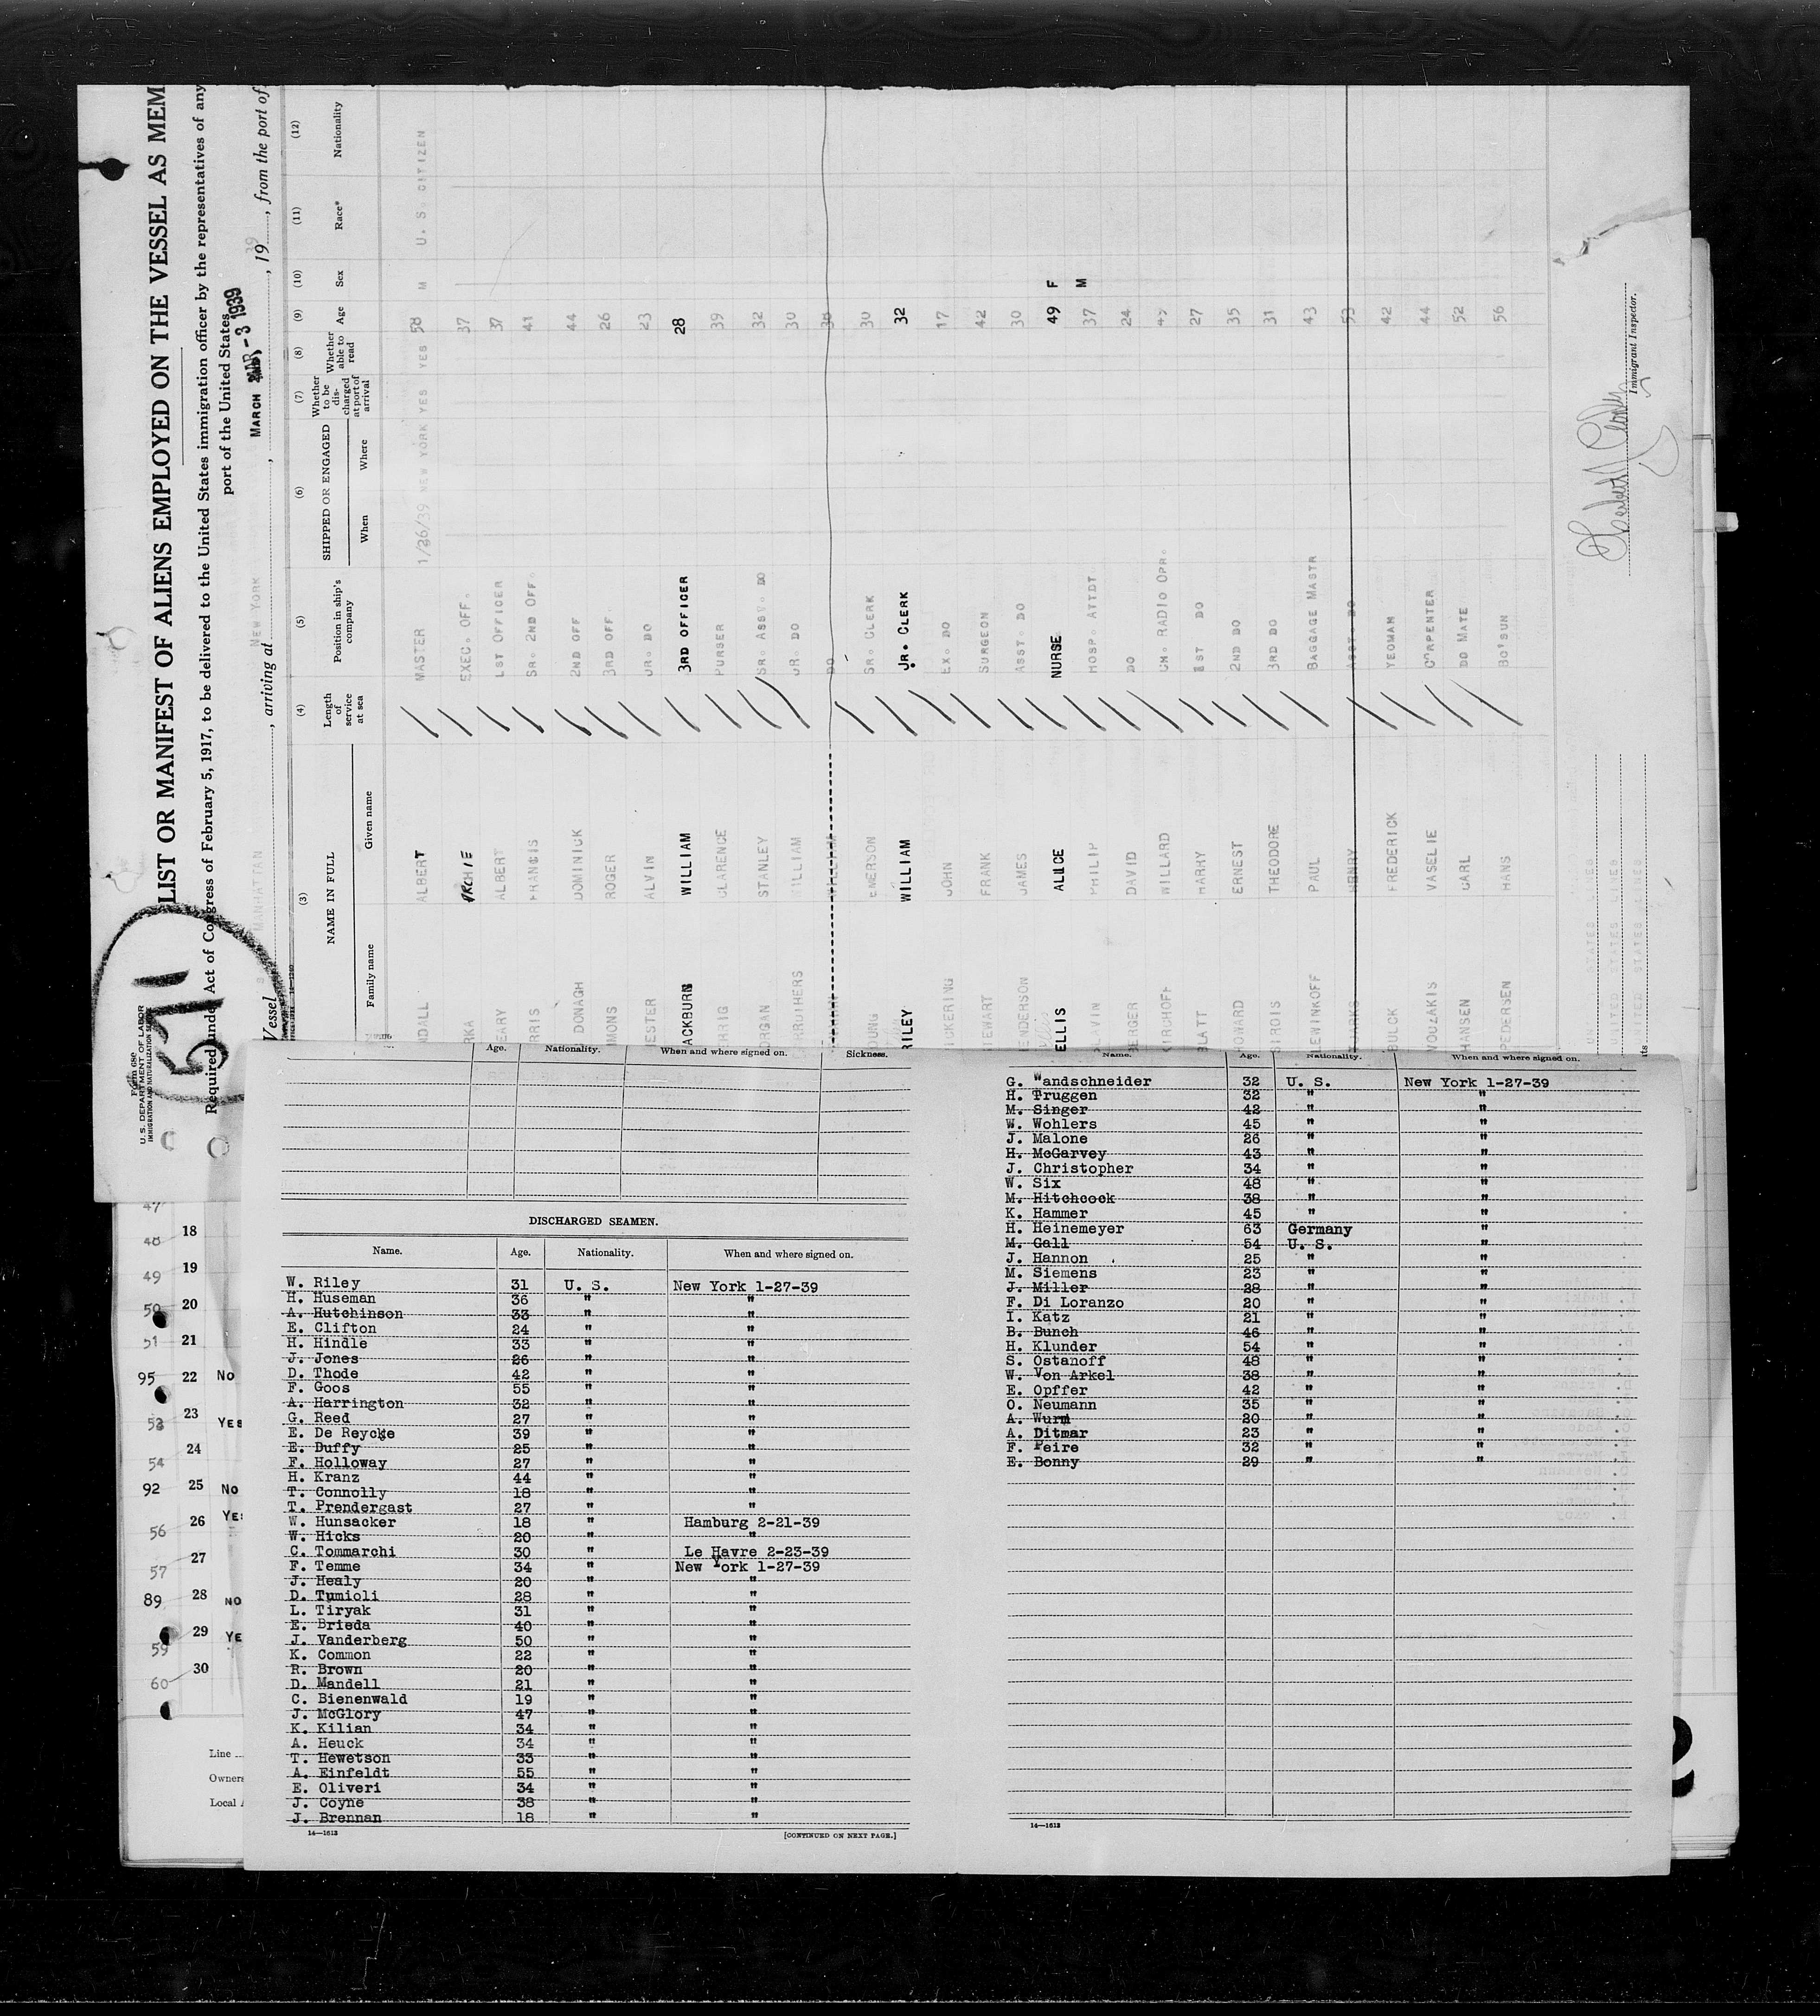 Form 680
U. S. DEPARTMENT OF LABOR
IMMIGRATION AND NATURALIZATION SERVICE
571
LIST OR MANIFEST OF ALIENS EMPLOYED ON THE VESSEL AS MEM
Required under Act of Congress of February 5, 1917, to be delivered to the United States immigration officer by the representatives of any
port of the United States
Vessel MANHATTAN, arriving at NEW YORK, MARCH MAR -3 1939, 1939, from the port of
(3) (4) (5) (6) (7) (8) (9) (10) (11) (12)
NAME IN FULL Length of service at sea Position in ship's company SHIPPED OR ENGAGED Whether to be discharged at port of arrival Whether able to read Age Sex Race* Nationality
Family name Given name When Where
NDALL ALBERT MASTER 1/26/39 NEW YORK YES YES 58 M U. S. CITIZEN
RKA ARCHIE EXEC. OFF. 37
EARY ALBERT 1ST OFFICER 37
RRIS FRANCIS SR. 2ND OFF. 41
DONAGH DOMINICK 2ND OFF 44
MONS ROGER 3RD OFF. 26
ESTER ALVIN JR. DO 23
ACKBURN WILLIAM 3RD OFFICER 28
RRIG CLARENCE PURSER 39
ORGAN STANLEY SR. ASST. DO 32
RRUTHERS WILLIAM JR. DO 30
DO
OUNG EMERSON SR. CLERK 30
RILEY WILLIAM JR. CLERK 32
ICKERING JOHN EX. DO 17
TEWART FRANK SURGEON 42
ENDERSON JAMES ASST. DO 30
ELLIS ALICE NURSE 49 F
ALVIN PHILIP HOSP. ATTDT 37 M
BERGER DAVID DO 24
KIRCHOFF WILLARD CH. RADIO OPR.
BLATT HARRY 1ST DO 27
HOWARD ERNEST 2ND DO 35
SIROIS THEODORE 3RD DO 31
LEWINKOFF PAUL BAGGAGE MASTR 43
HENRY ASST. DO 53
BULCK FREDERICK YEOMAN 42
VOUZAKIS VASELIE CARPENTER 44
HANSEN CARL DO MATE 52
PEDERSEN HANS BO'SUN 56
UNITED STATES LINES
UNITED STATES LINES
Immigrant Inspector.
47
48 18
49 19
50 20
51 21
95 22 No
53 23 YES
54 24
92 25 No
56 26 YES
57 27
89 28 NO
59 29 YE
60 30
Line
Owners
Local A
2
Age. Nationality. When and where signed on. Sickness.
DISCHARGED SEAMEN.
Name. Age. Nationality. When and where signed on.
W. Riley 31 U. S. New York 1-27-39
H. Huseman 36 " "
A. Hutchinson 33 " "
E. Clifton 24 " "
H. Hindle 33 " "
J. Jones 26 " "
D. Thode 42 " "
F. Goos 55 " "
A. Harrington 32 " "
G. Reed 27 " "
E. De Reycke 39 " "
E. Duffy 25 " "
F. Holloway 27 " "
H. Kranz 44 " "
T. Connolly 18 " "
T. Prendergast 27 " "
W. Hunsacker 18 " Hamburg 2-21-39
W. Hicks 20 " "
C. Tommarchi 30 " Le Havre 2-23-39
F. Temme 34 " New York 1-27-39
J. Healy 20 " "
D. Tumioli 28 " "
L. Tiryak 31 " "
E. Brieda 40 " "
J. Vanderberg 50 " "
K. Common 22 " "
R. Brown 20 " "
D. Mandell 21 " "
C. Bienenwald 19 " "
J. McGlory 47 " "
K. Kilian 34 " "
A. Heuck 34 " "
T. Hewetson 33 " "
A. Einfeldt 55 " "
E. Oliveri 34 " "
J. Coyne 38 " "
J. Brennan 18 " "
14—1613 [CONTINUED ON NEXT PAGE.]
Name. Age. Nationality. When and where signed on.
G. Wandschneider 32 U. S. New York 1-27-39
H. Truggen 32 " "
M. Singer 42 " "
W. Wohlers 45 " "
J. Malone 26 " "
H. McGarvey 43 " "
J. Christopher 34 " "
W. Six 48 " "
M. Hitchcock 38 " "
K. Hammer 45 " "
H. Heinemeyer 63 Germany "
M. Gall 54 U. S. "
J. Hannon 25 " "
M. Siemens 23 " "
J. Miller 28 " "
F. Di Loranzo 20 " "
I. Katz 21 " "
B. Bunch 46 " "
H. Klunder 54 " "
S. Ostanoff 48 " "
W. Von Arkel 38 " "
E. Opffer 42 " "
O. Neumann 35 " "
A. Wurm 20 " "
A. Ditmar 23 " "
F. Peire 32 " "
E. Bonny 29 " "
14—1613